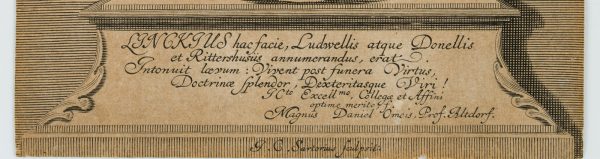 LINCKIUS hac facie, Ludwellis atque Donellis
et Rittershusiis annumerandus, erat.
Intonuit lævum: Vivent post funera Virtus,
Doctrinæ splendor, Dexteritasque Viri!
JCto Excell.mo Collegæ et Affini
optime merito ff.
Magnus Daniel Omeis, Prof. Altdorf.
J. C. Sartorius sculpsit.